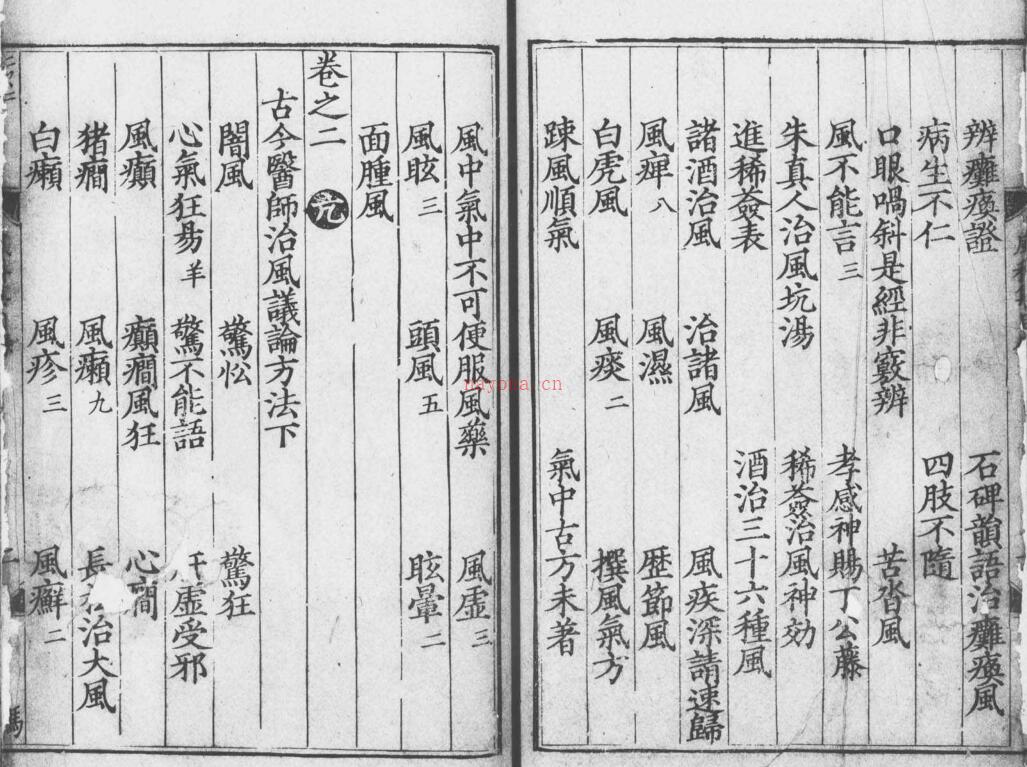 辨癱瘓證 石碑韻語治癱瘓風
病生不仁 四肢不隨
口眼喎斜是經非竅辨 苦沓風
風不能言三 孝感神賜丁公藤
朱真人治風坑湯 稀薟治風神効
進稀薟表 酒治三十六種風
諸酒治風 治諸風 風疾深請速歸
風痺八 風濕 歷節風
白虎風 風痰二 撰風氣方
踈風順氣 氣中古方未著
風中氣中不可便服風藥 風虛三
風眩三 頭風五 眩暈二
面腫風
卷之二
古今醫師治風議論方法下
闇風 驚忪 驚狂
心氣狂昜羊 驚不能語 虛受邪
風癲 癲癎風狂 心癎
猪癎 風癩九 長 治大風
白癩 風疹三 風癬二
nayona.cn